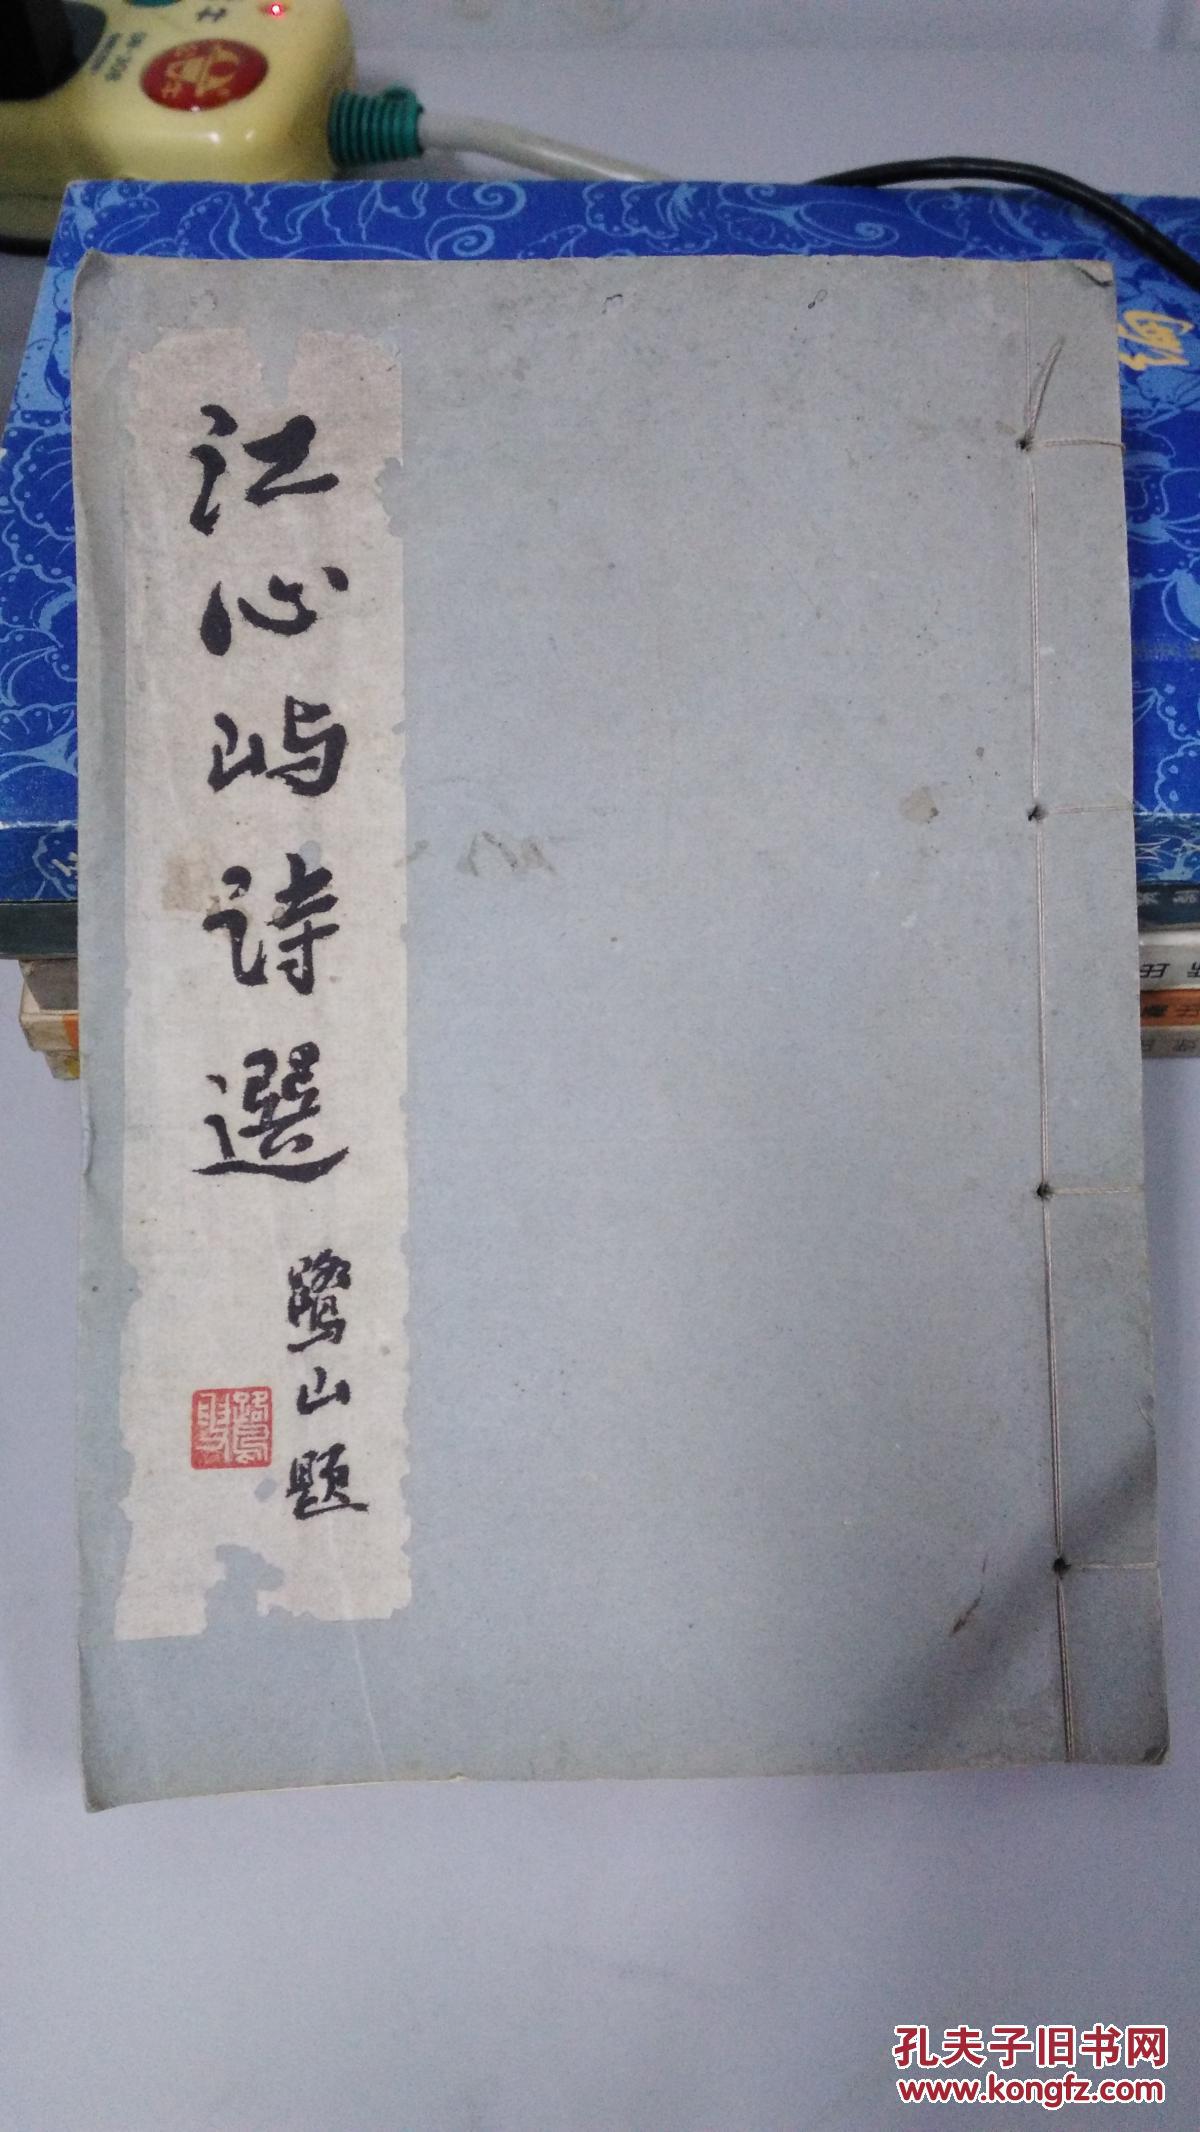 江心屿诗選
鷺山题
孔夫子旧书网
www.kongfz.com